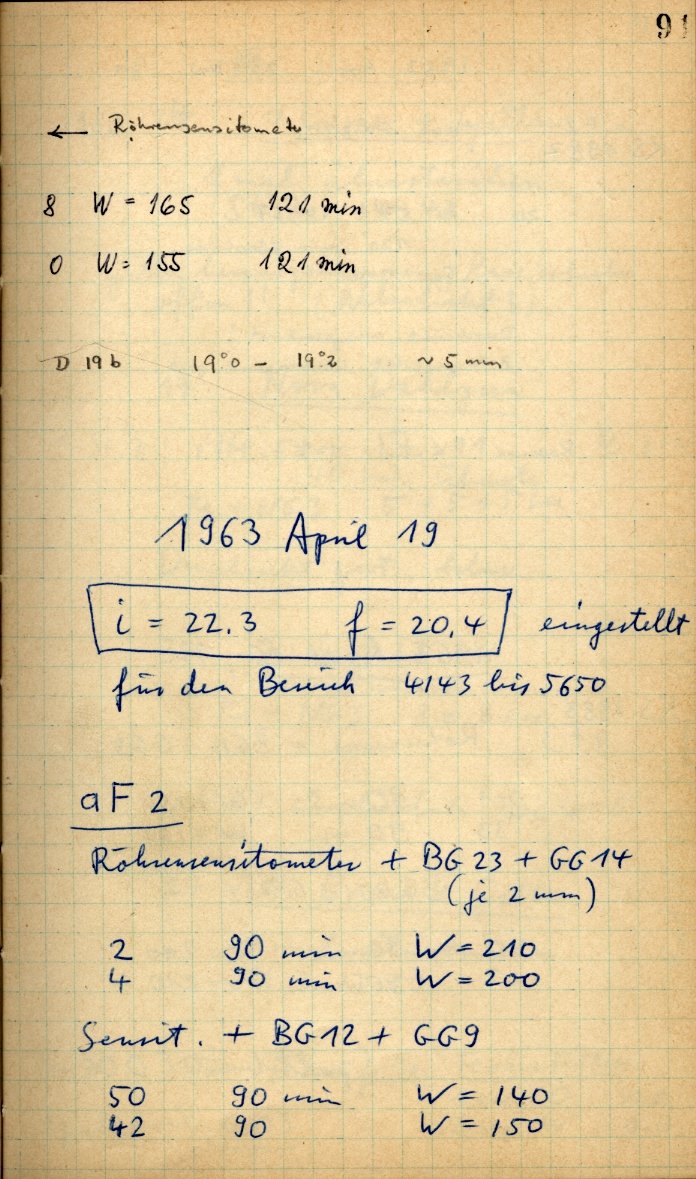 91
← Röhrensensitometer
8 W = 165 121 min
0 W = 155 121 min
D 19 b 19°0 – 19°2 ~ 5 min
1963 April 19
i = 22.3 f = 20,4 eingestellt
für den Bereich 4143 bis 5650
aF 2
Röhrensensitometer + BG 23 + GG 14
(je 2 mm)
2 90 min W = 210
4 90 min W = 200
Sensit. + BG 12 + GG 9
50 90 min W = 140
42 90 W = 150